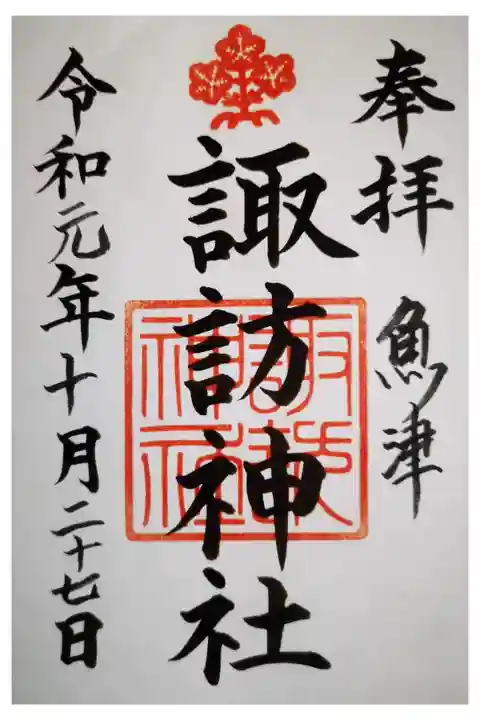 奉拝 魚津
諏訪神社
諏訪神社
令和元年十月二十七日